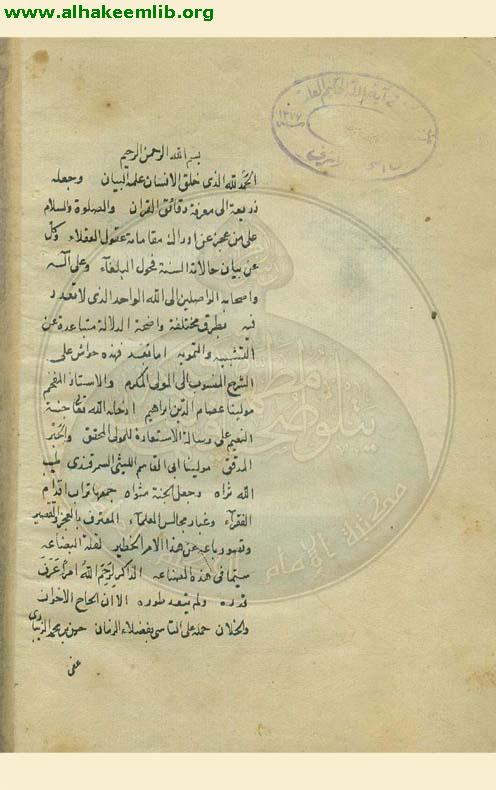 www.alhakeemlib.org
بسم الله الرحمن الرحيم
الحمد لله الذي خلق الانسان علمه البيان وجعله
ذريعة الى معرفة دقائق القران والصلوة والسلام
على من عجز عن ادراك مقاماته عقول العقلاء وكل
عن بيان حالاته السنة فحول البلغاء وعلى آله
واصحابه الواصلين الى الله الواحد الذي لا تعدد
فيه بطرق مختلفة واضحة الدلالة متباعدة عن
التشبيه والتمويه اما بعد فهذه حواش على
الشرح المنسوب الى المولى المكرم والاستاذ المفخم
مولينا عصام الدين ابراهيم ادخله الله تعالى جنة
النعيم على رسالة الاستعارة للمولى المحقق والحبر
المدقق مولينا ابى القاسم الليثى السمرقندى طيب
الله ثراه وجعل الجنة مثواه جمعها تراب اقدام
الفقراء وغبار مجالس العلماء المعترف بالعجز والتقصير
وقصور باعه عن هذا الامر الخطير لقلة البضاعه
سيما فى هذه الصناعه الذاكر رحم الله امرأ عرف
قدره ولم يتعد طوره الا ان الحاح الاخوان
والخلان حمله على التأسى بفضلاء الزمان حسن بن محمد الزيبارى
عفى